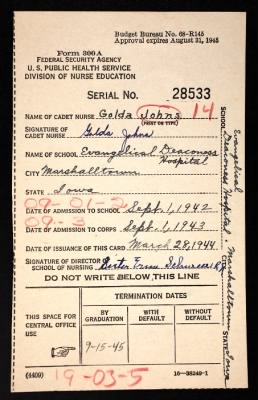 Budget Bureau No. 68-R145
Approval expires August 31, 1945
Form 300A
FEDERAL SECURITY AGENCY
U. S. PUBLIC HEALTH SERVICE
DIVISION OF NURSE EDUCATION
SERIAL NO. 28533
NAME OF CADET NURSE Golda Johns 14
(PRINT OR TYPE)
SIGNATURE OF CADET NURSE Golda Johns
NAME OF SCHOOL Evangelical Deaconess Hospital
CITY Marshalltown
STATE Iowa
09-01-2
DATE OF ADMISSION TO SCHOOL Sept. 1, 1942
09-3
DATE OF ADMISSION TO CORPS Sept. 1, 1943
DATE OF ISSUANCE OF THIS CARD March 28, 1944
SIGNATURE OF DIRECTOR OF SCHOOL OF NURSING Sister Erna R.N.
DO NOT WRITE BELOW THIS LINE
THIS SPACE FOR CENTRAL OFFICE USE
TERMINATION DATES
BY GRADUATION
WITH DEFAULT
WITHOUT DEFAULT
9-15-45
(4409)
19-03-5
16-38249-1
SCHOOL Evangelical Deaconess Hospital Marshalltown STATE Iowa